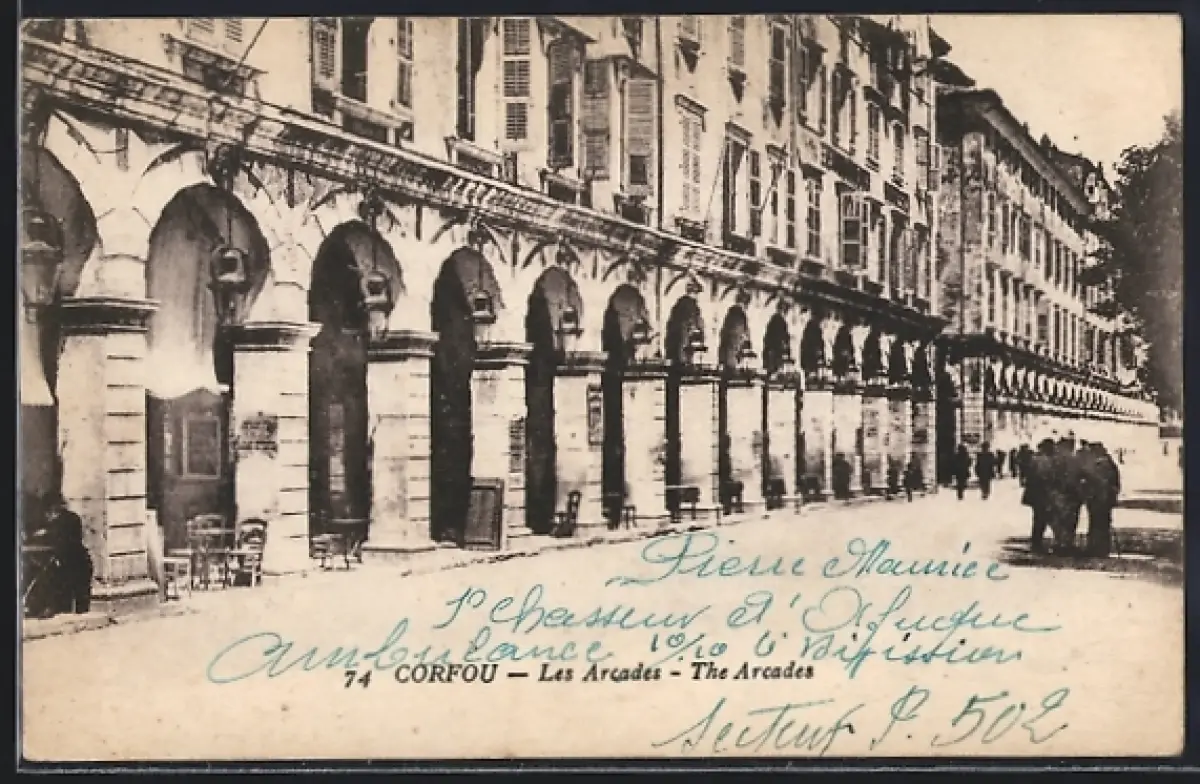 Pierre Maurice
1er Chasseur d'Afrique
Ambulance 10/10 6 Division
74 CORFOU — Les Arcades - The Arcades
Secteur P. 502